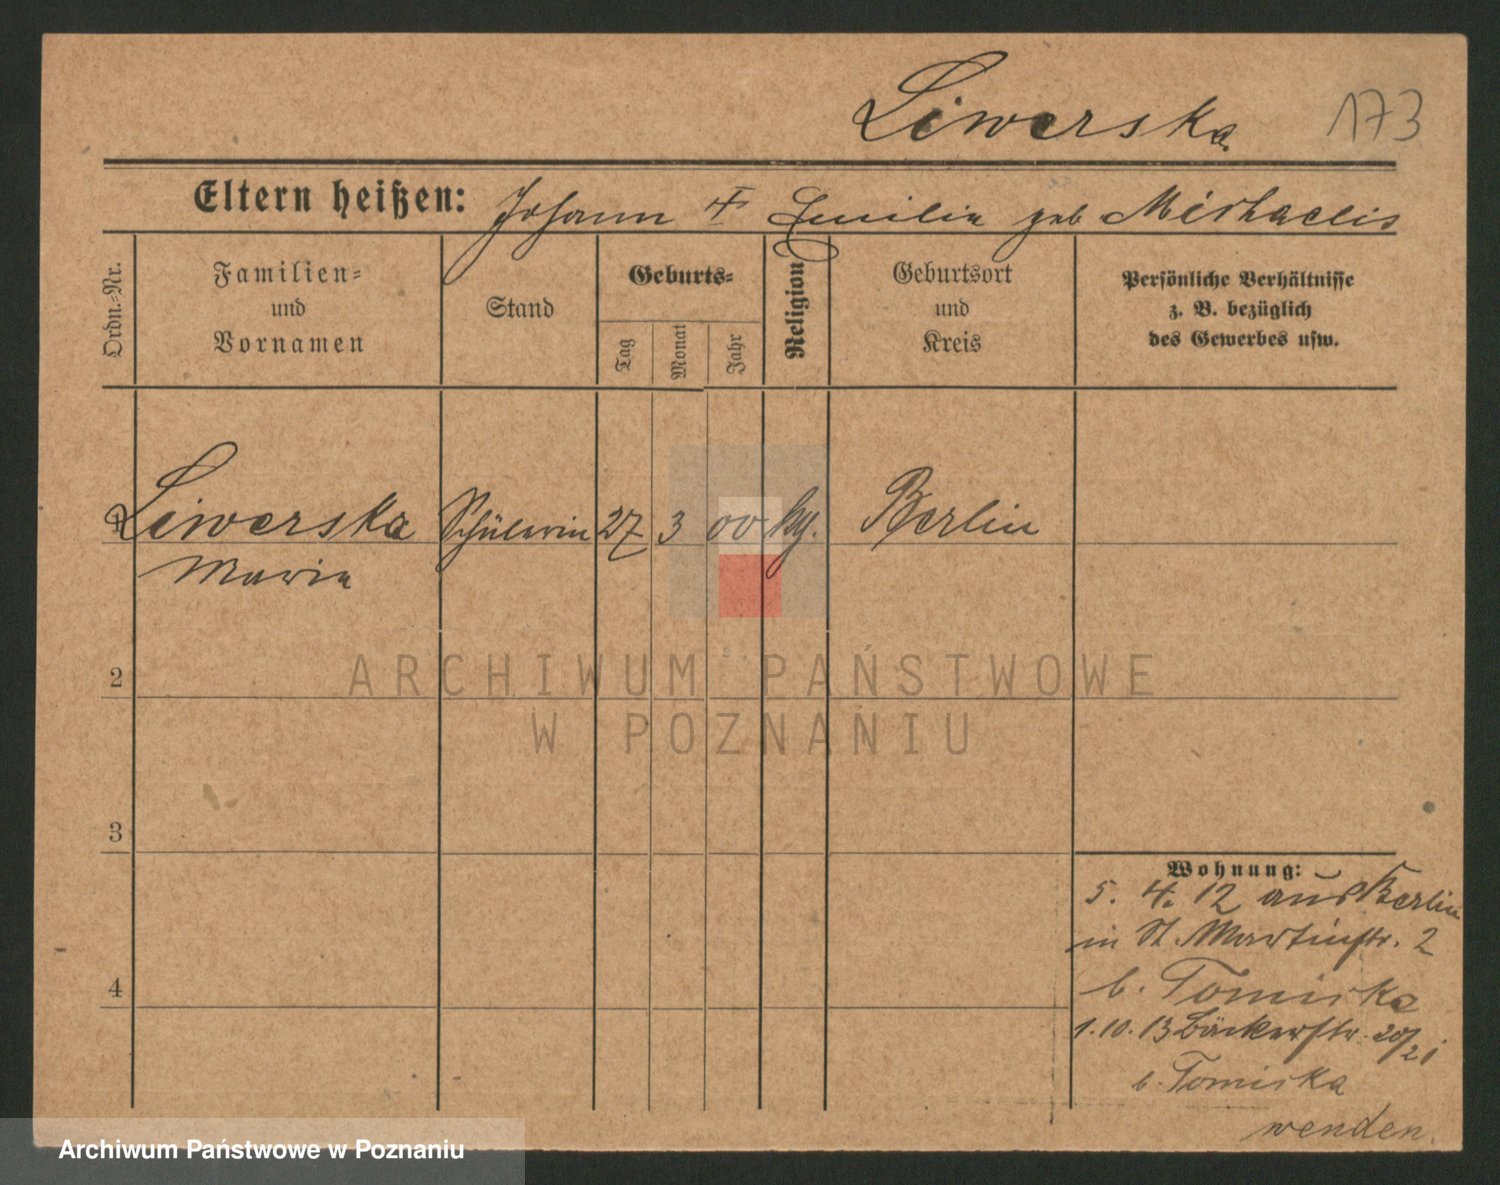 Liwerska
173
Eltern heißen: Johann † Emilie geb Michaelis
Ordn.-Nr.
Familien-
und
Vornamen
Stand
Geburts-
Tag
Monat
Jahr
Religion
Geburtsort
und
Kreis
Persönliche Verhältnisse
z. B. bezüglich
des Gewerbes usw.
1 Liwerska Schülerin 27 3 00 Berlin
Maria
ARCHIWUM PAŃSTWOWE
W POZNANIU
2
3
4
Wohnung:
5. 4. 12 aus Berlin
in St. Martinstr. 2
b. Tomiska
1. 10. 13 Bäckerstr. 20/21
b. Tomiska
wenden.
Archiwum Państwowe w Poznaniu